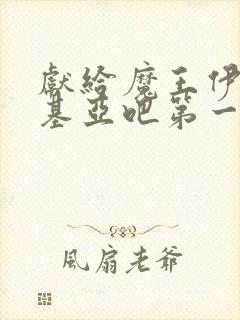 獻給魔王伊
基亞吧第一
風扇老爺